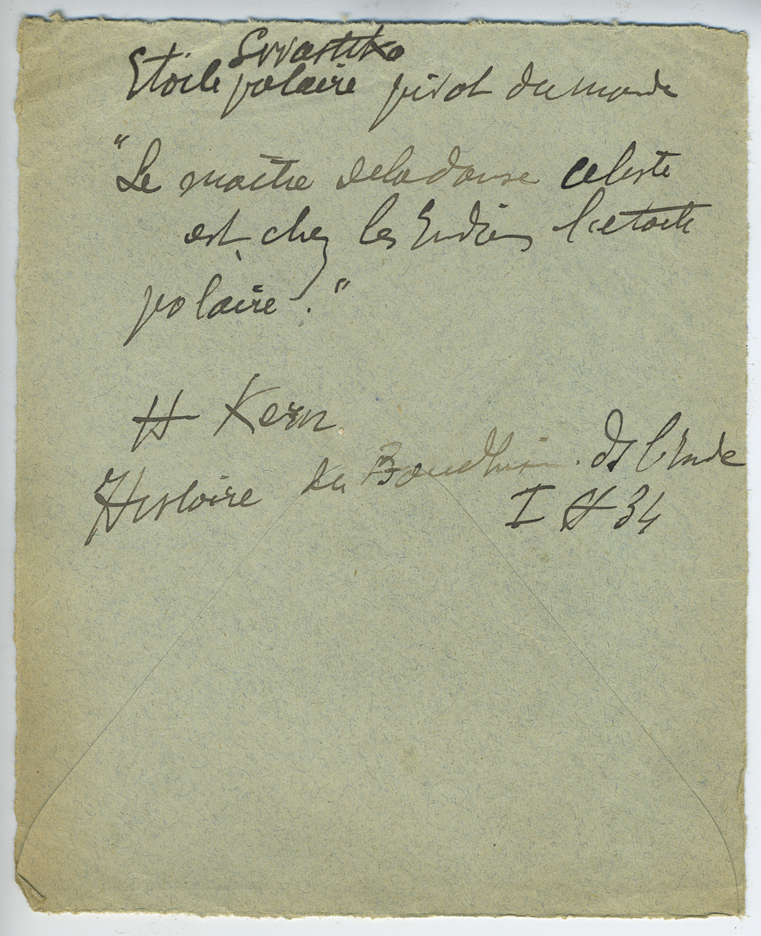 Swastika
Etoile polaire pivot du monde
"Le maître de la danse celeste
est chez les Indiens l'etoile
polaire."
H Kern
Histoire du Bouddhism. ds l'Inde
I 34